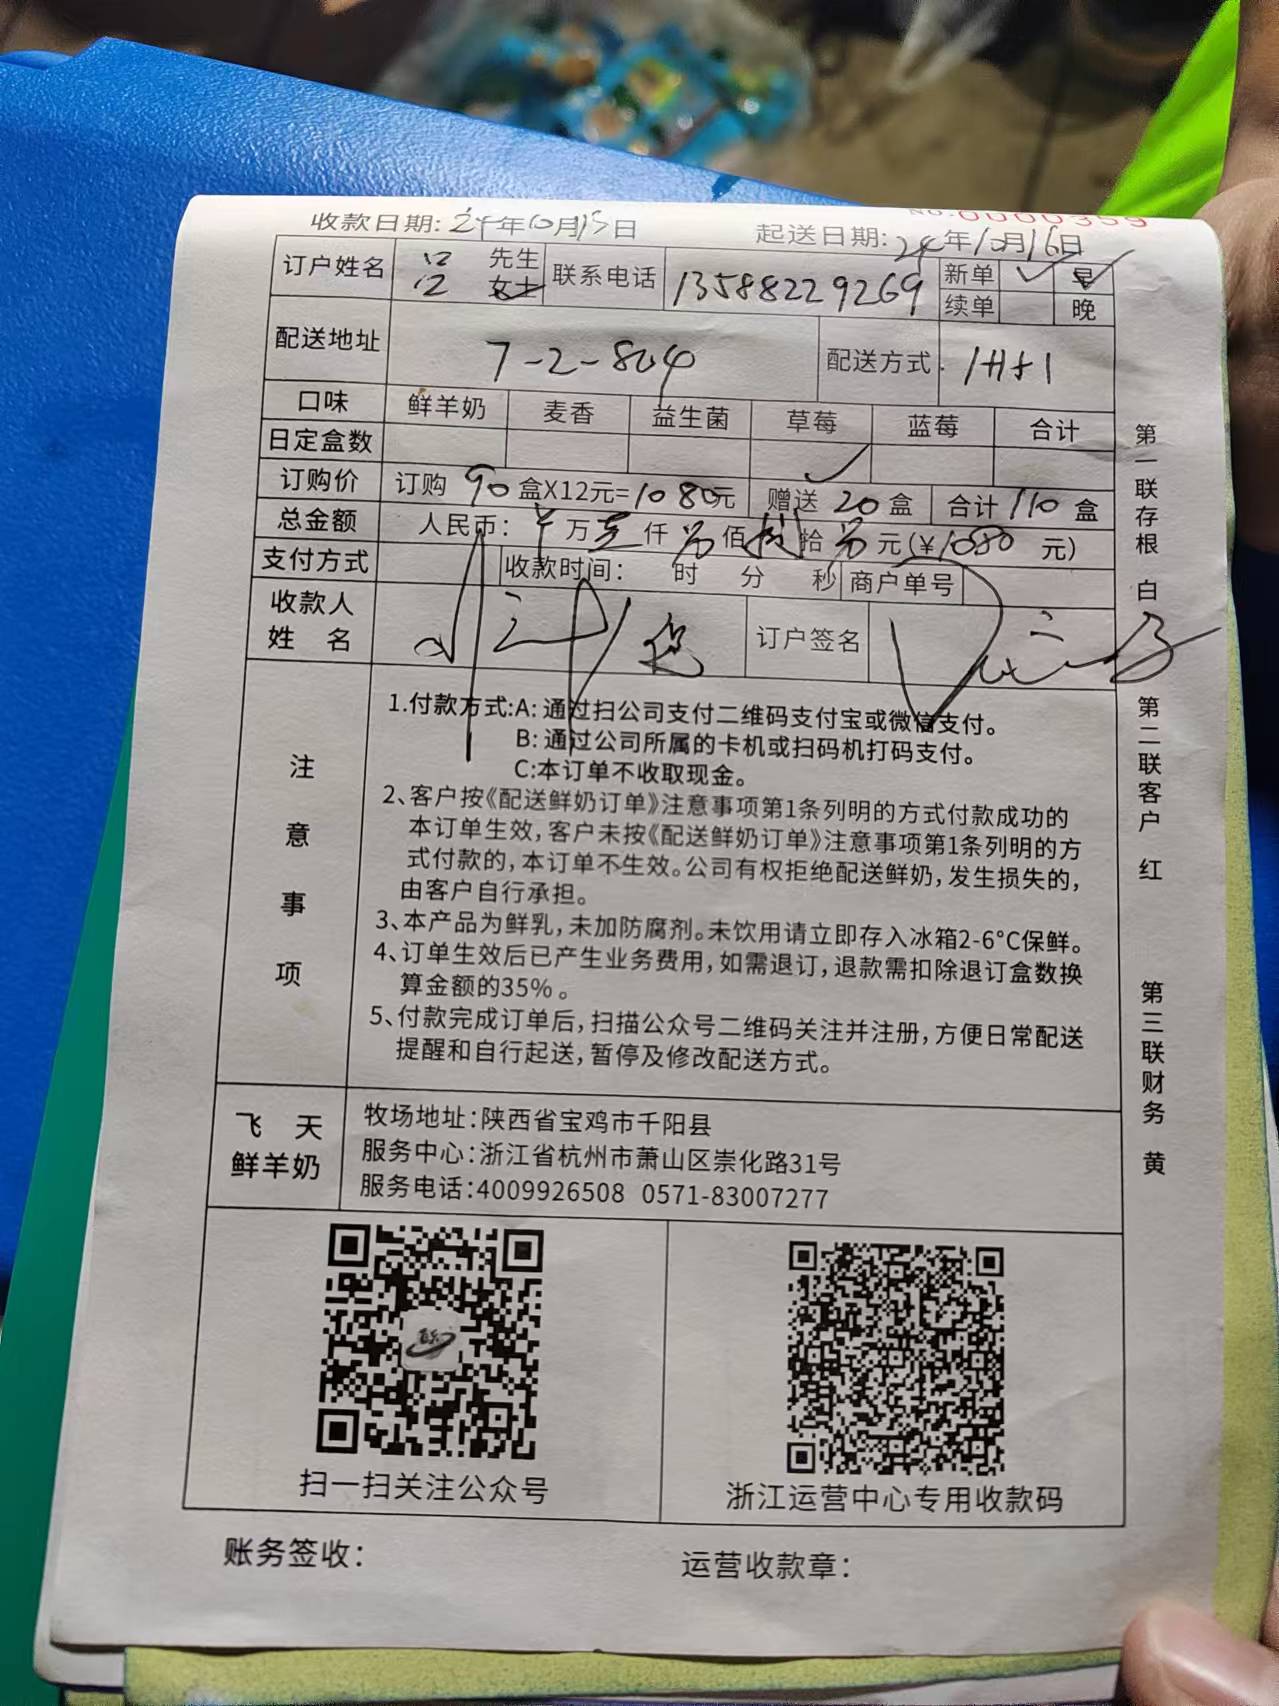 No.0000359
收款日期:24年10月15日 起送日期:24年10月16日
订户姓名 先生 女士 联系电话 13588229269 新单 ✓ 早
续单 晚
配送地址 7-2-804 配送方式 1+1+1
口味 鲜羊奶 麦香 益生菌 草莓 蓝莓 合计
日定盒数 ✓
订购价 订购 90 盒X12元=1080元 赠送 20 盒 合计 110 盒
总金额 人民币: 万 壹 仟 另 佰 捌 拾 另 元(¥1080 元)
支付方式 收款时间: 时 分 秒 商户单号
收款人
姓 名 订户签名
注意事项
1.付款方式:A:通过扫公司支付二维码支付宝或微信支付。
B:通过公司所属的卡机或扫码机打码支付。
C:本订单不收取现金。
2、客户按《配送鲜奶订单》注意事项第1条列明的方式付款成功的
本订单生效,客户未按《配送鲜奶订单》注意事项第1条列明的方
式付款的,本订单不生效。公司有权拒绝配送鲜奶,发生损失的,
由客户自行承担。
3、本产品为鲜乳,未加防腐剂。未饮用请立即存入冰箱2-6°C保鲜。
4、订单生效后已产生业务费用,如需退订,退款需扣除退订盒数换
算金额的35%。
5、付款完成订单后,扫描公众号二维码关注并注册,方便日常配送
提醒和自行起送,暂停及修改配送方式。
飞 天
鲜羊奶
牧场地址:陕西省宝鸡市千阳县
服务中心:浙江省杭州市萧山区崇化路31号
服务电话:4009926508 0571-83007277
扫一扫关注公众号
浙江运营中心专用收款码
账务签收:
运营收款章:
第一联存根 白
第二联客户 红
第三联财务 黄